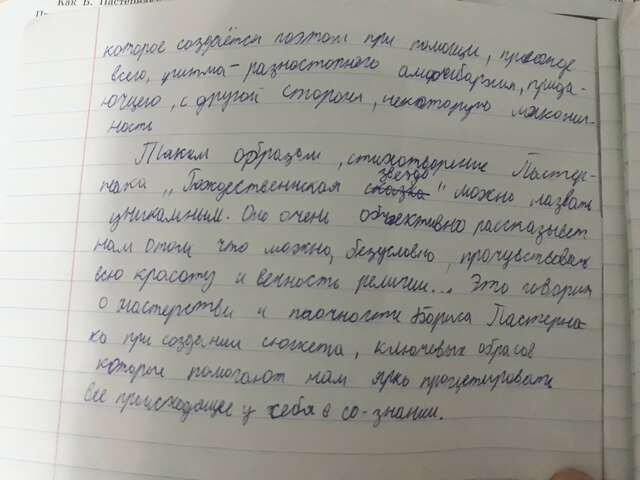 Как Б. Пастернак
которое создаётся поэтом при помощи, прежде
всего, ритма – разностопного амфибрахия, прида-
ющего, с другой стороны, некоторую лаконич-
ность
Таким образом, стихотворение Пастер-
нака „Рождественская звезда" можно назвать
уникальным. Оно очень объективно рассказывает
нам о том что можно, безусловно, прочувствовать
всю красоту и вечность религии... Это говорит
о мастерстве и Бориса Пастерна-
ка при создании сюжета, ключевых образов
которые помогают нам ярко
все происходящее у себя в со-знании.